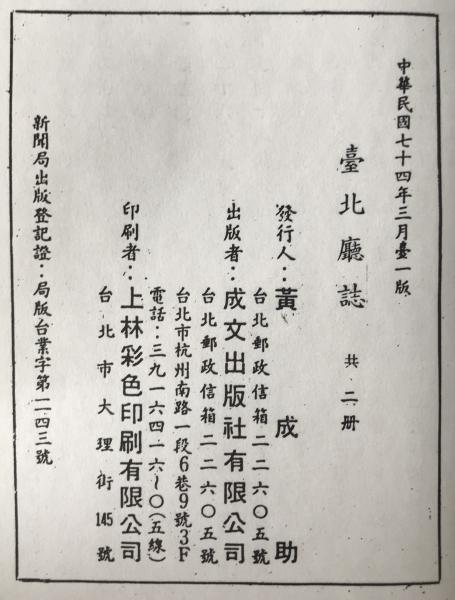 中華民國七十四年三月臺一版
臺北廳誌 共二册
發行人：黃成助
台北郵政信箱二二六〇五號
出版者：成文出版社有限公司
台北郵政信箱二二六〇五號
台北市杭州南路一段6巷9號3F
電話：三九一六四一六～〇(五線)
印刷者：上林彩色印刷有限公司
台北市大理街145號
新聞局出版登記證：局版台業字第一一四三號